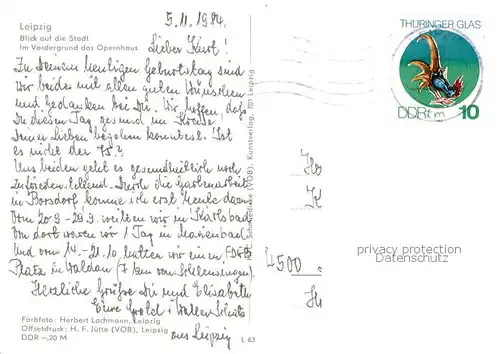 Leipzig
Blick auf die Stadt
Im Vordergrund das Opernhaus
5.11.1984.
Lieber Kurt!
Zu Deinem heutigen Geburtstag sind
wir beide mit allen guten Wünschen
und Gedanken bei Dir. Wir hoffen, daß
Du diesen Tag gesund im Kreise
Deiner Lieben begehen konntest. Ist
es nicht der 75.?
Uns beiden geht es gesundheitlich noch
zufriedenstellend. Durch die Gartenarbeit
in Borsdorf, komme ich erst heute dazu
Vom 20.9.-29.9. weilten wir in Karlsbad
von dort waren wir 1 Tag in Marienbad
Und vom 14.-21.10. hatten wir einen FDGB
Platz in Waldau (7 km von Schleusingen).
Herzliche Grüße Dir und Elisabeth
Eure
aus Leipzig
Farbfoto: Herbert Lachmann, Leipzig
Offsetdruck: H. F. Jütte (VOB), Leipzig
DDR -,20 M
L 63
(VOB), Kunstverlag, 701 Leipzig
THÜRINGER GLAS
DDR 10
4500
privacy protection
Datenschutz